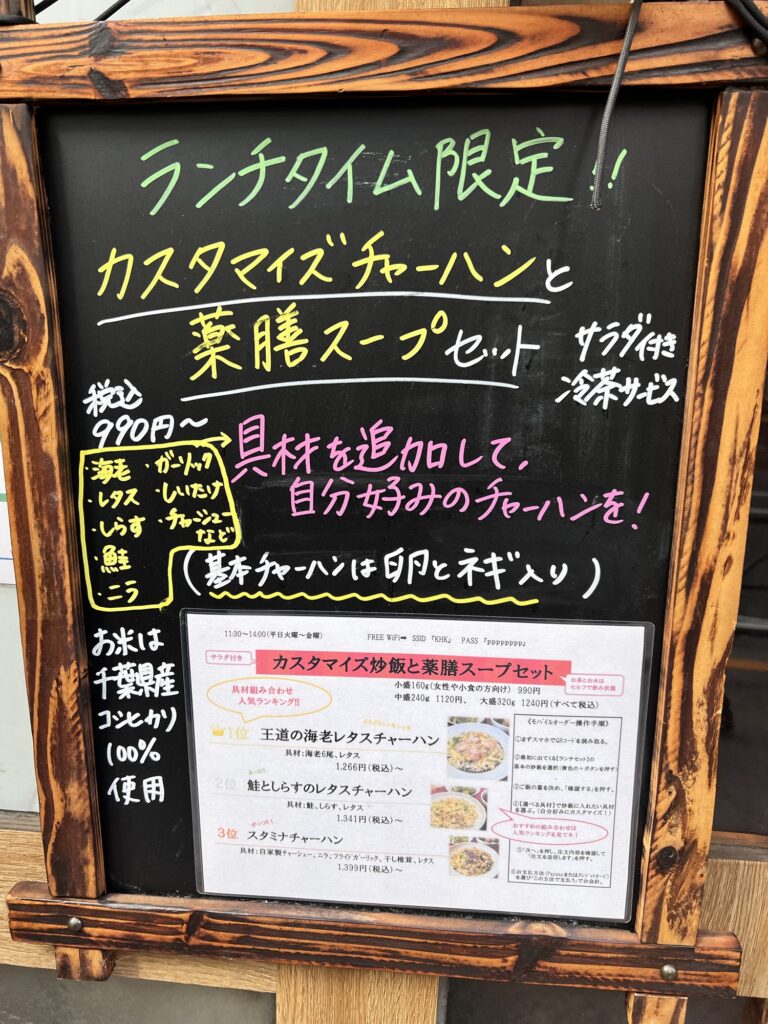 ランチタイム限定!!
カスタマイズチャーハンと
薬膳スープセット
サラダ付き
冷茶サービス
税込
990円～
・海老
・レタス
・しらす
・鮭
・ニラ
・ガーリック
・しいたけ
・チャーシュー
など
具材を追加して、
自分好みのチャーハンを!
(基本チャーハンは卵とネギ入り)
お米は
千葉県産
コシヒカリ
100%
使用
11:30～14:00(平日火曜～金曜)
FREE WiFi➡ SSID 「KHK」 PASS 「pppppppp」
サラダ付き
カスタマイズ炒飯と薬膳スープセット
お茶とお水は
セルフで飲み放題
小盛160g(女性や小食の方向け) 990円
中盛240g 1120円、 大盛320g 1240円(すべて税込)
具材組み合わせ
人気ランキング!!
1位 王道の海老レタスチャーハン
具材:海老6尾、レタス
1.266円(税込)～
2位 鮭としらすのレタスチャーハン
具材:鮭、しらす、レタス
1.341円(税込)～
3位 スタミナチャーハン
具材:自家製チャーシュー、ニラ、フライドガーリック、干し椎茸、レタス
1.399円(税込)～
《モバイルオーダー操作手順》
①まずスマホでQRコードを読み取る。
②最初に出てくる【ランチセット】の
基本の炒飯を選択(黄色の+ボタンを押す)
③ご飯の量を決め、「確認する」を押す。
④【選べる具材】で炒飯に入れたい具材
を選ぶ。(自分好みにカスタマイズ!)
おすすめの組み合わせは
人気ランキングを見て下さい!
⑤「次へ」を押し、注文内容を確認して
「注文を送信します」を押す。
⑥お支払方法(Paypayまたはクレジットカード)
を選び「この方法で支払う」でお会計。